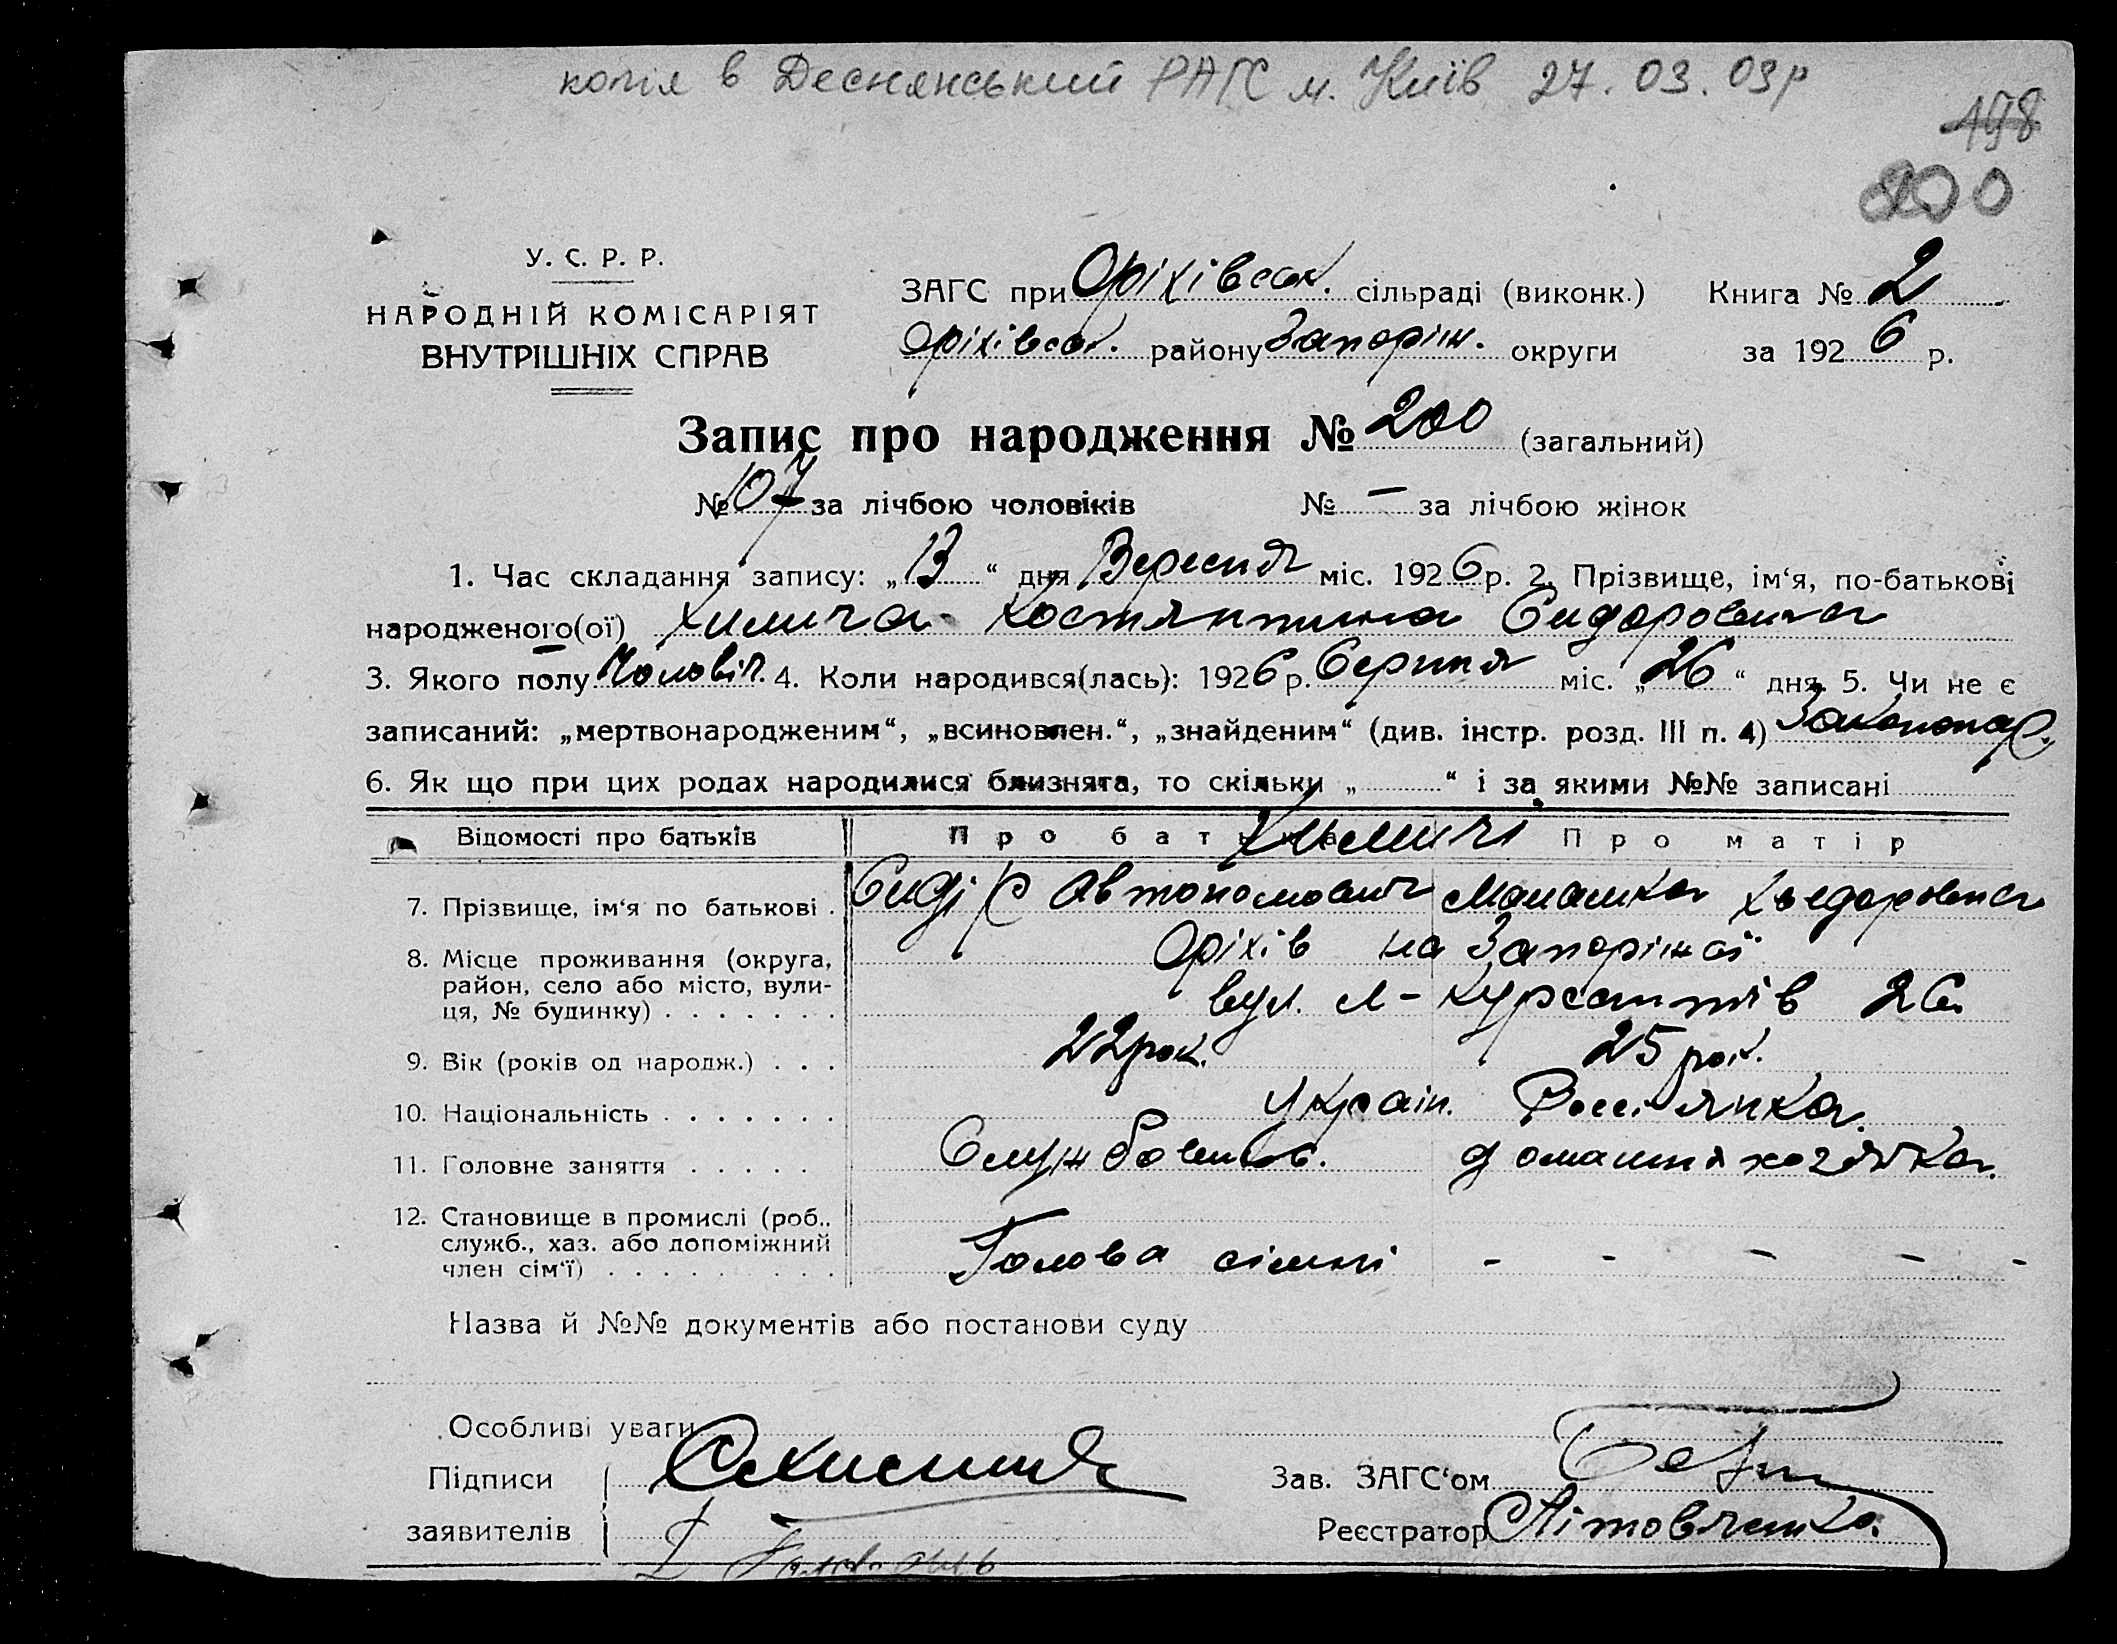 копія в Деснянський РАГС м. Київ 27.03.03р
198
200
У. С. Р. Р.
НАРОДНІЙ КОМІСАРІЯТ
ВНУТРІШНІХ СПРАВ
ЗАГС при Оріхівськ. сільраді (виконк.) Книга № 2
Оріхівськ. району Запоріж. округи за 1926 р.
Запис про народження № 200 (загальний)
№ 107 за лічбою чоловіків № – за лічбою жінок
1. Час складання запису: „13“ дня Вересня міс. 1926 р. 2. Прізвище, ім‘я, по-батькові
народженого(ої) Химича Костянтина Сидоровича
3. Якого полу Чоловіч. 4. Коли народився(лась): 1926 р. Серпня міс. „26“ дня. 5. Чи не є
записаний: „мертвонародженим“, „всиновлен.“, „знайденим“ (див. інстр. розд. III п. 4)
6. Як що при цих родах народилися близнята, то скільки „ “ і за якими №№ записані
Відомості про батьків Про батька Про матір
Химичі
7. Прізвище, ім‘я по батькові . Сидір Автономович Хведоровна
8. Місце проживання (округа, район, село або місто, вулиця, № будинку) . . . . . . . Оріхів на Запоріжжі
вул. Курсантів 26
9. Вік (років од народж.) . . . 22 рок. 25 рок.
10. Національність . . . . . . . Україн. Россіянка
11. Головне заняття . . . . . Службовець. домашня хазяйка.
12. Становище в промислі (роб., служб., хаз. або допоміжний член сім‘ї) . . . . . . . . . Голова сімні – – – – –
Назва й №№ документів або постанови суду
Особливі уваги
Підписи
Зав. ЗАГС‘ом
заявителів
Реєстратор Літовченко.